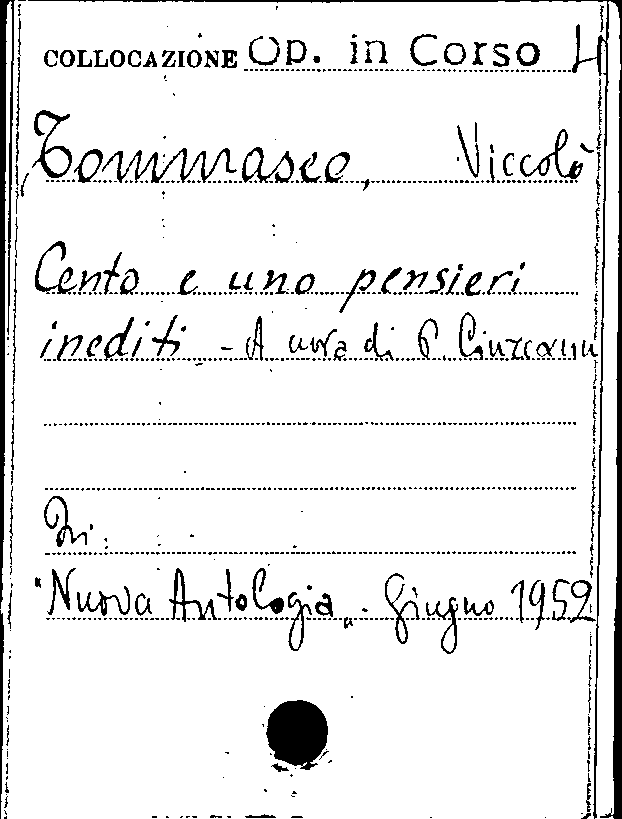 COLLOCAZIONE Op. in Corso 4
Tommaseo, Niccolò
Cento e uno pensieri
inediti - A cura di P. Ciureanu
In:
"Nuova Antologia„. Giugno 1952